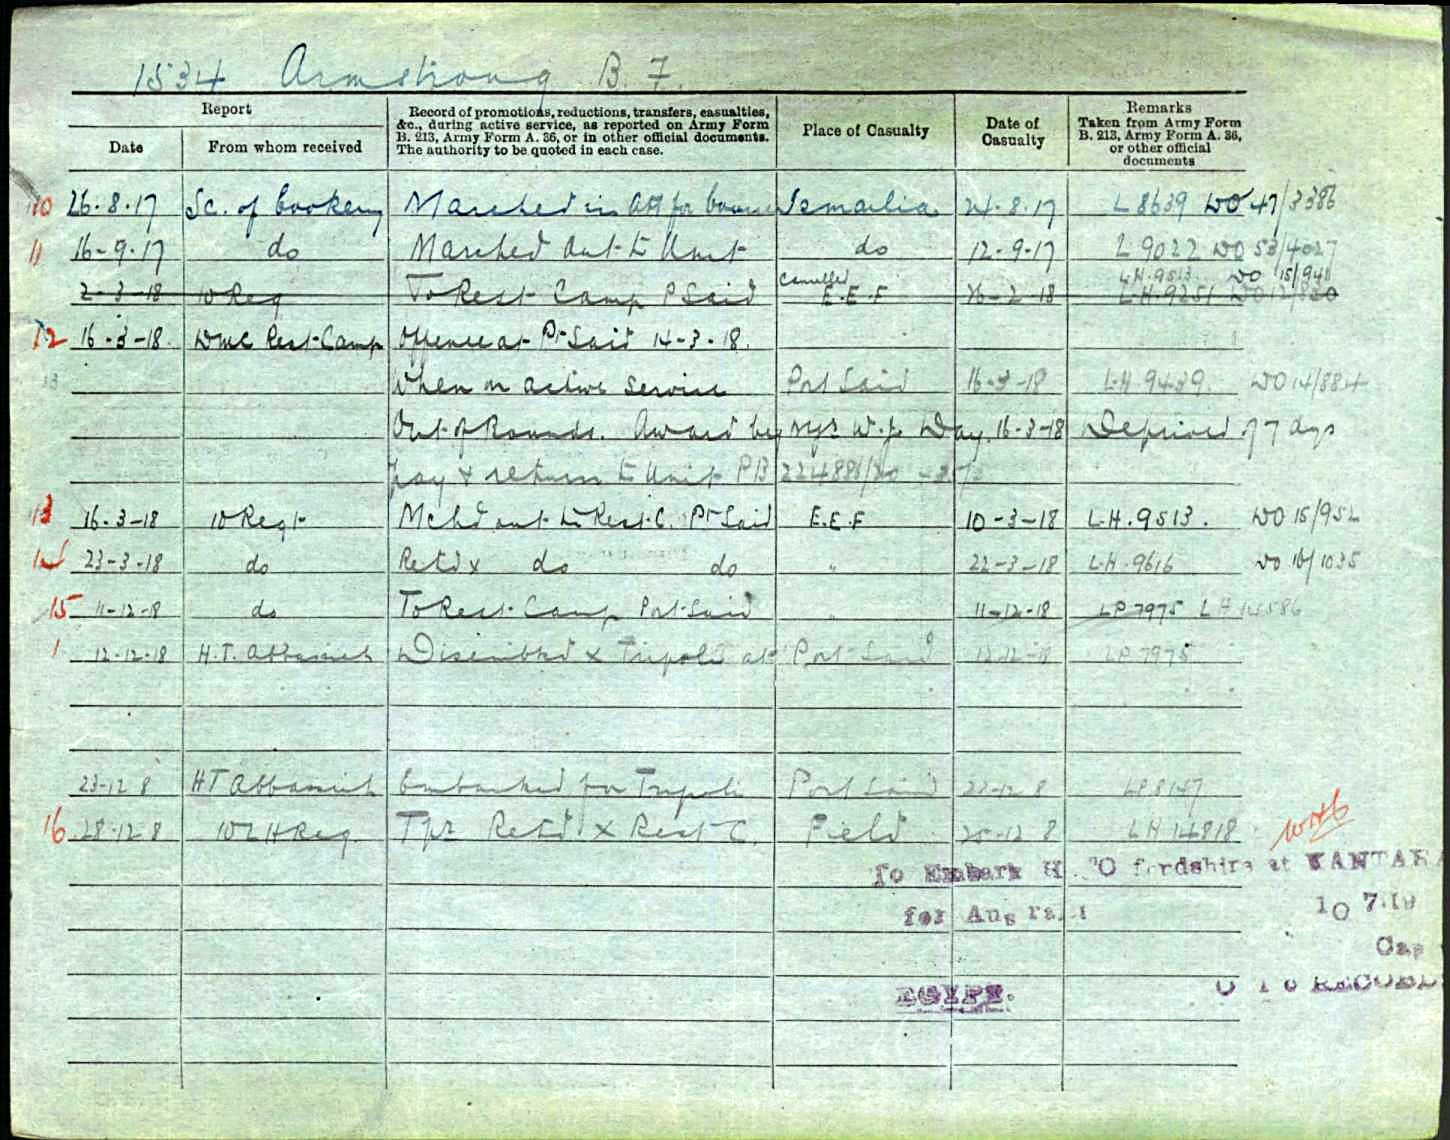 1534 Armstrong B. F.
Report
Record of promotions, reductions, transfers, casualties, &c., during active service, as reported on Army Form B. 213, Army Form A. 36, or in other official documents. The authority to be quoted in each case.
Place of Casualty
Date of Casualty
Remarks
Taken from Army Form B. 213, Army Form A. 36, or other official documents
Date
From whom received
10 26-8-17 Sc. of Cookery Marched in Att for Course Ismailia 24-8-17 L 8639 WO 47/3386
11 16-9-17 do Marched out to Unit do 12-9-17 L 9022 WO 53/4027
cancelled LH.9513 WO 15/948
2-3-18 10 Reg To Rest Camp P Said E.E.F 26-2-18 LH.9251 WO 12/830
12 16-3-18 DMC Rest Camp Offence at Pt Said 14-3-18.
13 When on active service Port Said 16-3-18 LH.9439. WO 14/884
Out of Bounds. Award by W. J. Day. 16-3-18 Deprived of 7 days
pay & return to Unit PB
13 16-3-18 10 Regt Mchd out to Rest C. Pt Said E.E.F 10-3-18 LH.9513. WO 15/952
23-3-18 do Retd x do do " 22-3-18 LH.9616 WO 16/1035
15 11-12-18 do To Rest Camp Port Said " 11-12-18 LP 7975 LH 14586
1 12-12-18 H.T. Abbassieh Disembkd x Tripoli at Port Said 12-12-18 LP 7975
23-12 8 HT Abbassieh Embarked for Tripoli Port Said 22-12 8 LP 8147
16 28-12-8 10 LH Reg. Tpr Retd x Rest C. Field 25-12 8 LH 14818
To Embark H. at KANTARA
for
10 7.19
Cap
EGYPT.
O I C RECORDS